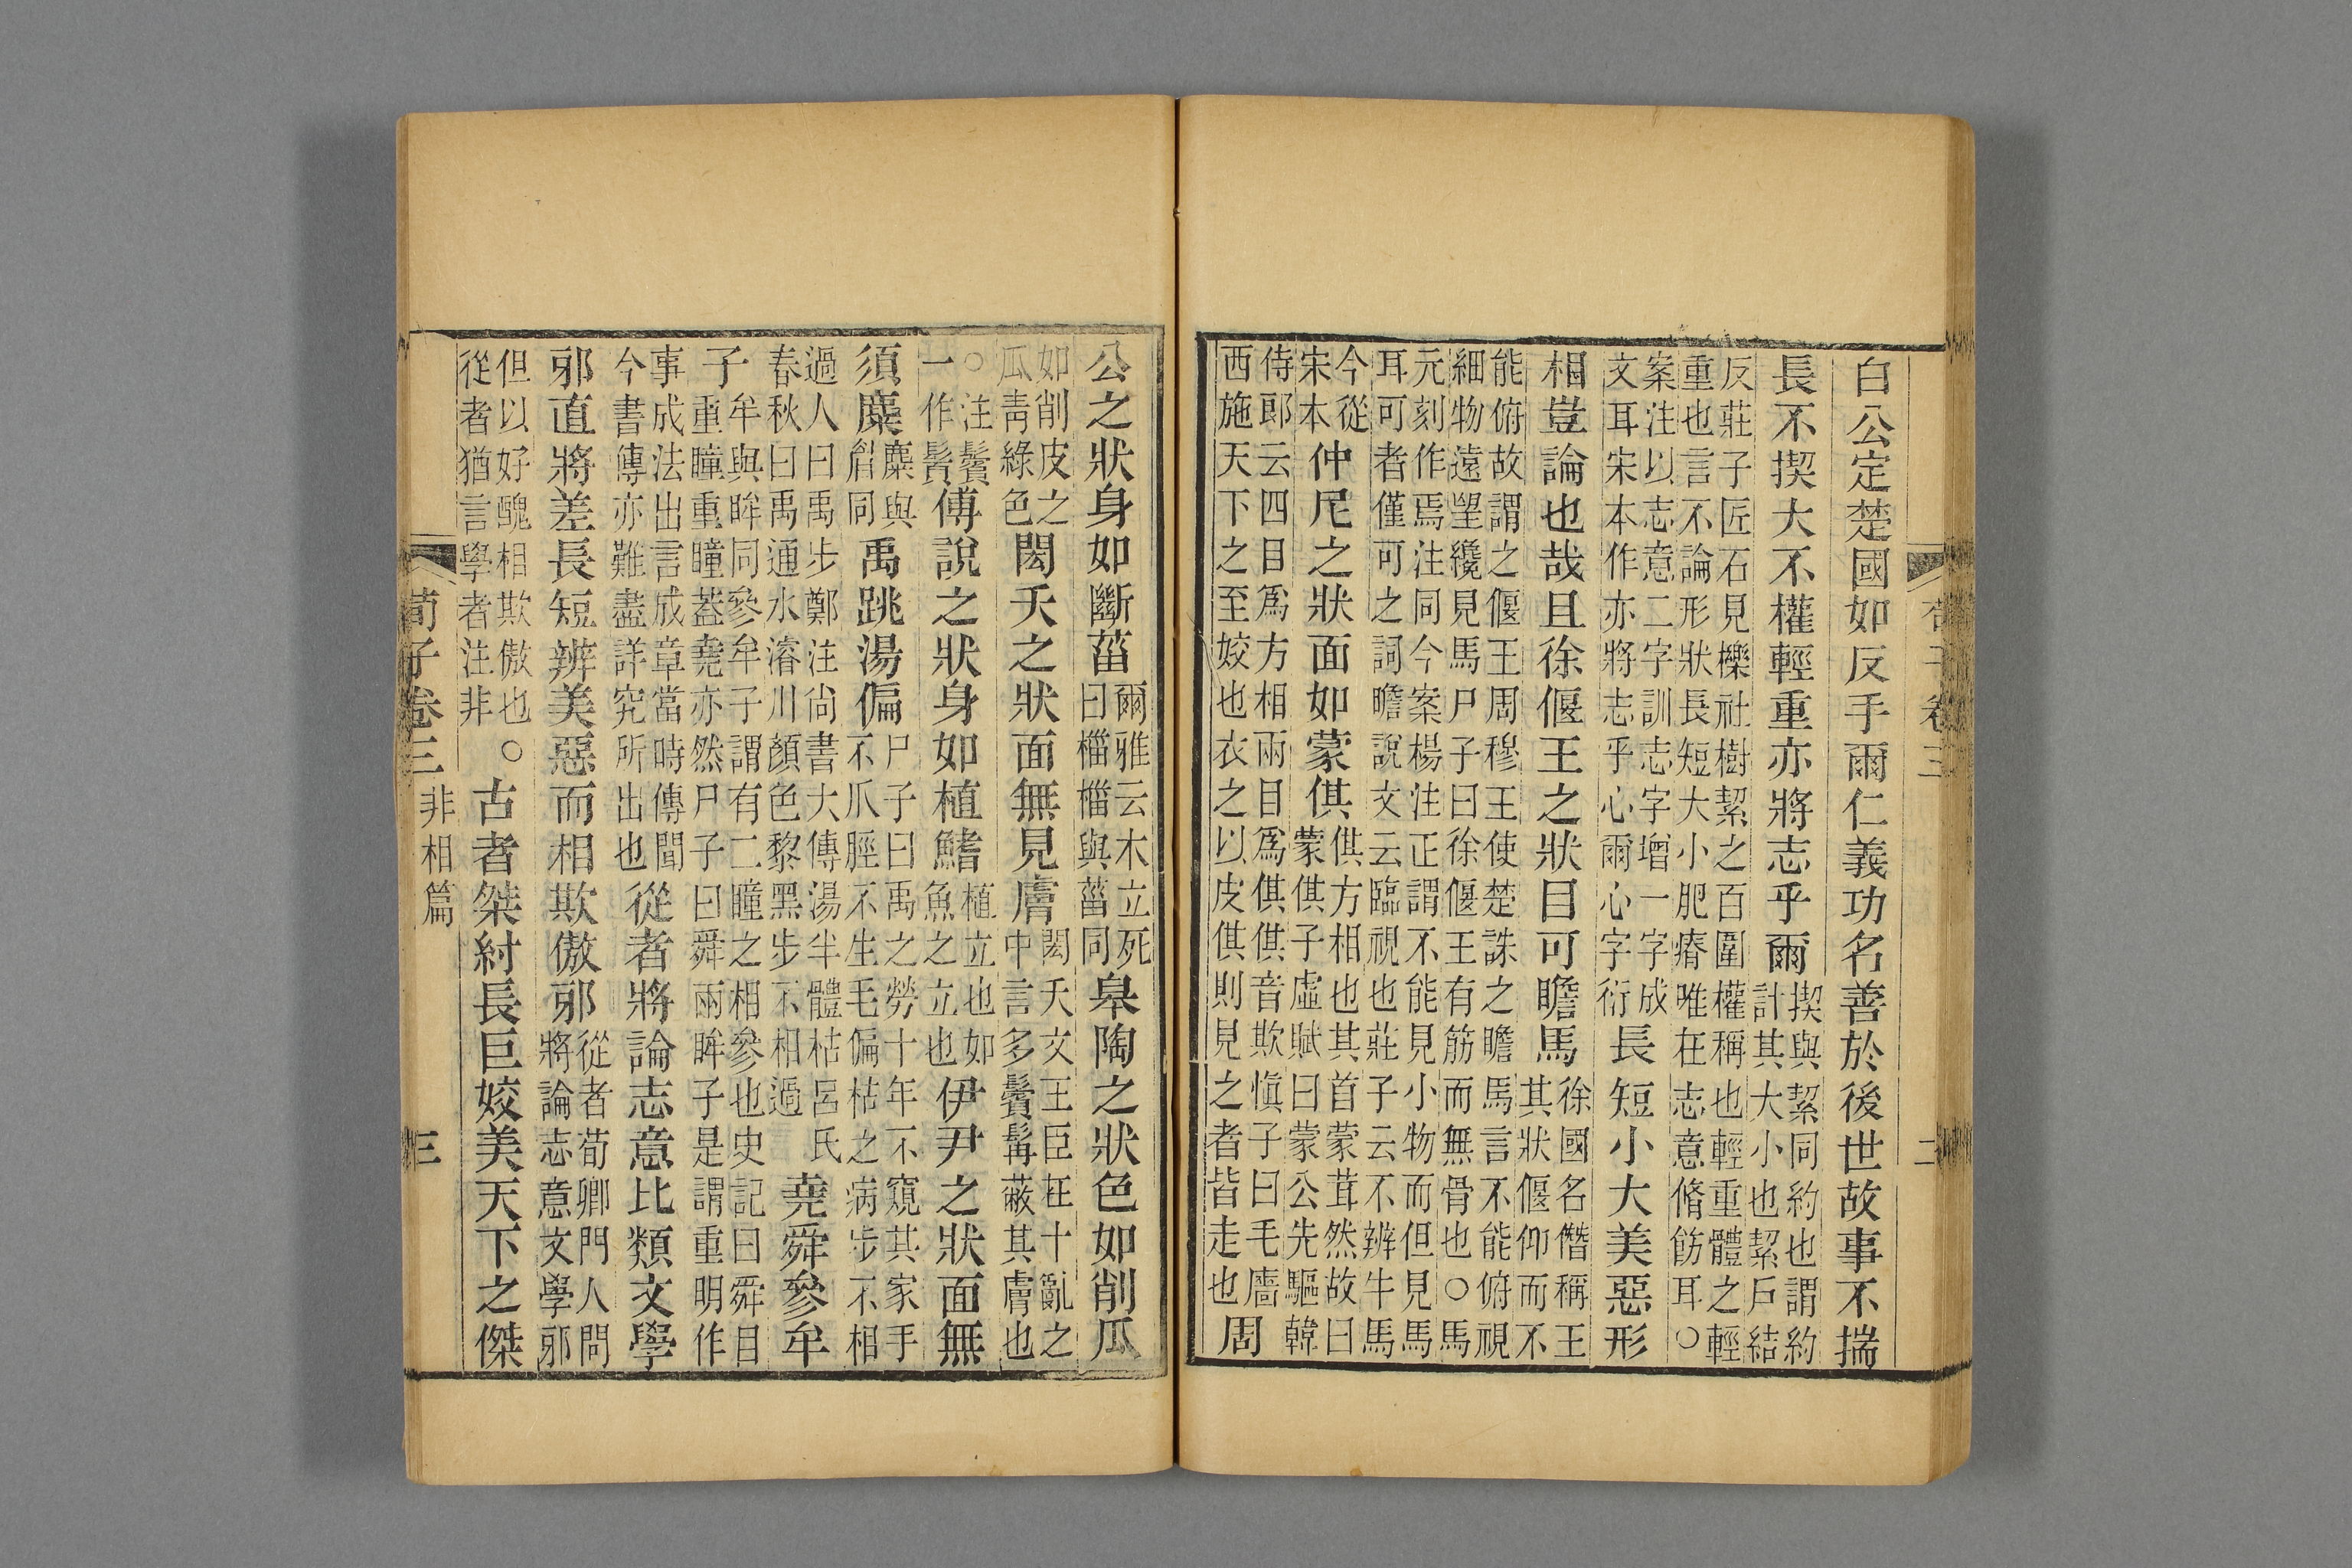 荀子卷三 二
白公定楚國如反手爾仁義功名善於後世故事不揣
長不揳大不權輕重亦將志乎爾揳與絜同約也謂約計其大小也絜戶結
反莊子匠石見櫟社樹絜之百圍權稱也輕重體之輕重也言不論形狀長短大小肥瘠唯在志意脩飭耳○
案注以志意二字訓志字增一字成文耳宋本作亦將志乎心爾心字衍長短小大美惡形
相豈論也哉且徐偃王之狀目可瞻馬徐國名僭稱王其狀偃仰而不
能俯故謂之偃王周穆王使楚誅之瞻馬言不能俯視細物遠望纔見馬尸子曰徐偃王有筋而無骨也○馬
元刻作焉注同今案楊注正謂不能見小物而但見馬耳可者僅可之詞瞻說文云臨視也莊子云不辨牛馬
今從宋本仲尼之狀面如蒙倛倛方相也其首蒙茸然故曰蒙倛子虛賦曰蒙公先驅韓
侍郎云四目爲方相兩目爲倛倛音欺慎子曰毛廧西施天下之至姣也衣之以皮倛則見之者皆走也周
公之狀身如斷菑爾雅云木立死曰椔椔與菑同皋陶之狀色如削瓜
如削皮之瓜青綠色閎夭之狀面無見膚閎夭文王臣在十亂之中言多鬢髯蔽其膚也
○注鬢一作鬚傅說之狀身如植鰭植立也如魚之立也伊尹之狀面無
須麋麋與睂同禹跳湯偏尸子曰禹之勞十年不窺其家手不爪脛不生毛偏枯之病步不相
過人曰禹步鄭注尚書大傳湯半體枯呂氏春秋曰禹通水濬川顏色黎黑步不相過堯舜參牟
子牟與眸同參牟子謂有二瞳之相參也史記曰舜目重瞳重瞳蓋堯亦然尸子曰舜兩眸子是謂重明作
事成法出言成章當時傳聞今書傳亦難盡詳究所出也從者將論志意比類文學
邪直將差長短辨美惡而相欺傲邪從者荀卿門人問將論志意文學邪
但以好醜相欺傲也○從者猶言學者注非古者桀紂長巨姣美天下之傑
荀子卷三 非相篇 三